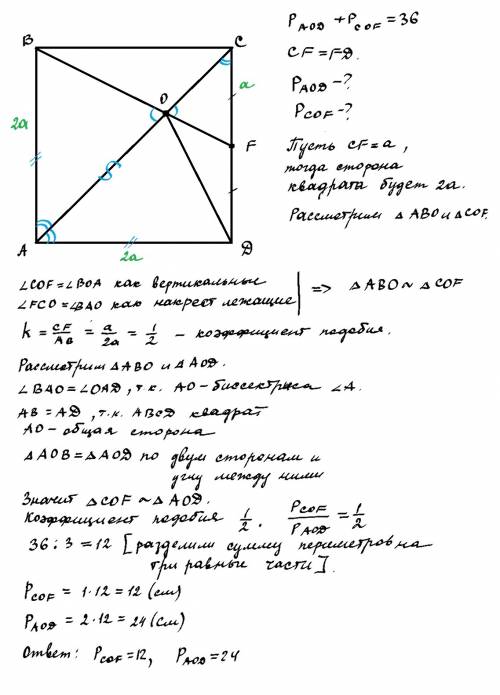 B
C
O
a
2a
F
A
2a
D
P_AOD + P_COF = 36
CF = FD.
P_AOD - ?
P_COF - ?
Пусть CF = a,
тогда сторона
квадрата будет 2a.
Рассмотрим △ ABO и △COF.
∠COF = ∠BOA как вертикальные
∠FCO = ∠BAO как накрест лежащие | => △ ABO ~ △ COF
k = CF/AB = a/2a = 1/2 - коэффициент подобия.
Рассмотрим △ABO и △AOD.
∠BAO = ∠OAD, т.к. AO - биссектриса ∠A.
AB = AD, т.к. ABCD квадрат
AO - общая сторона
△AOB = △AOD по двум сторонам и
углу между ними
Значит △COF ~ △AOD.
Коэффициент подобия 1/2. P_COF/P_AOD = 1/2
36 : 3 = 12 [разделили сумму периметров на
три равные части].
P_COF = 1 · 12 = 12 (см)
P_AOD = 2 · 12 = 24 (см)
Ответ: P_COF = 12, P_AOD = 24